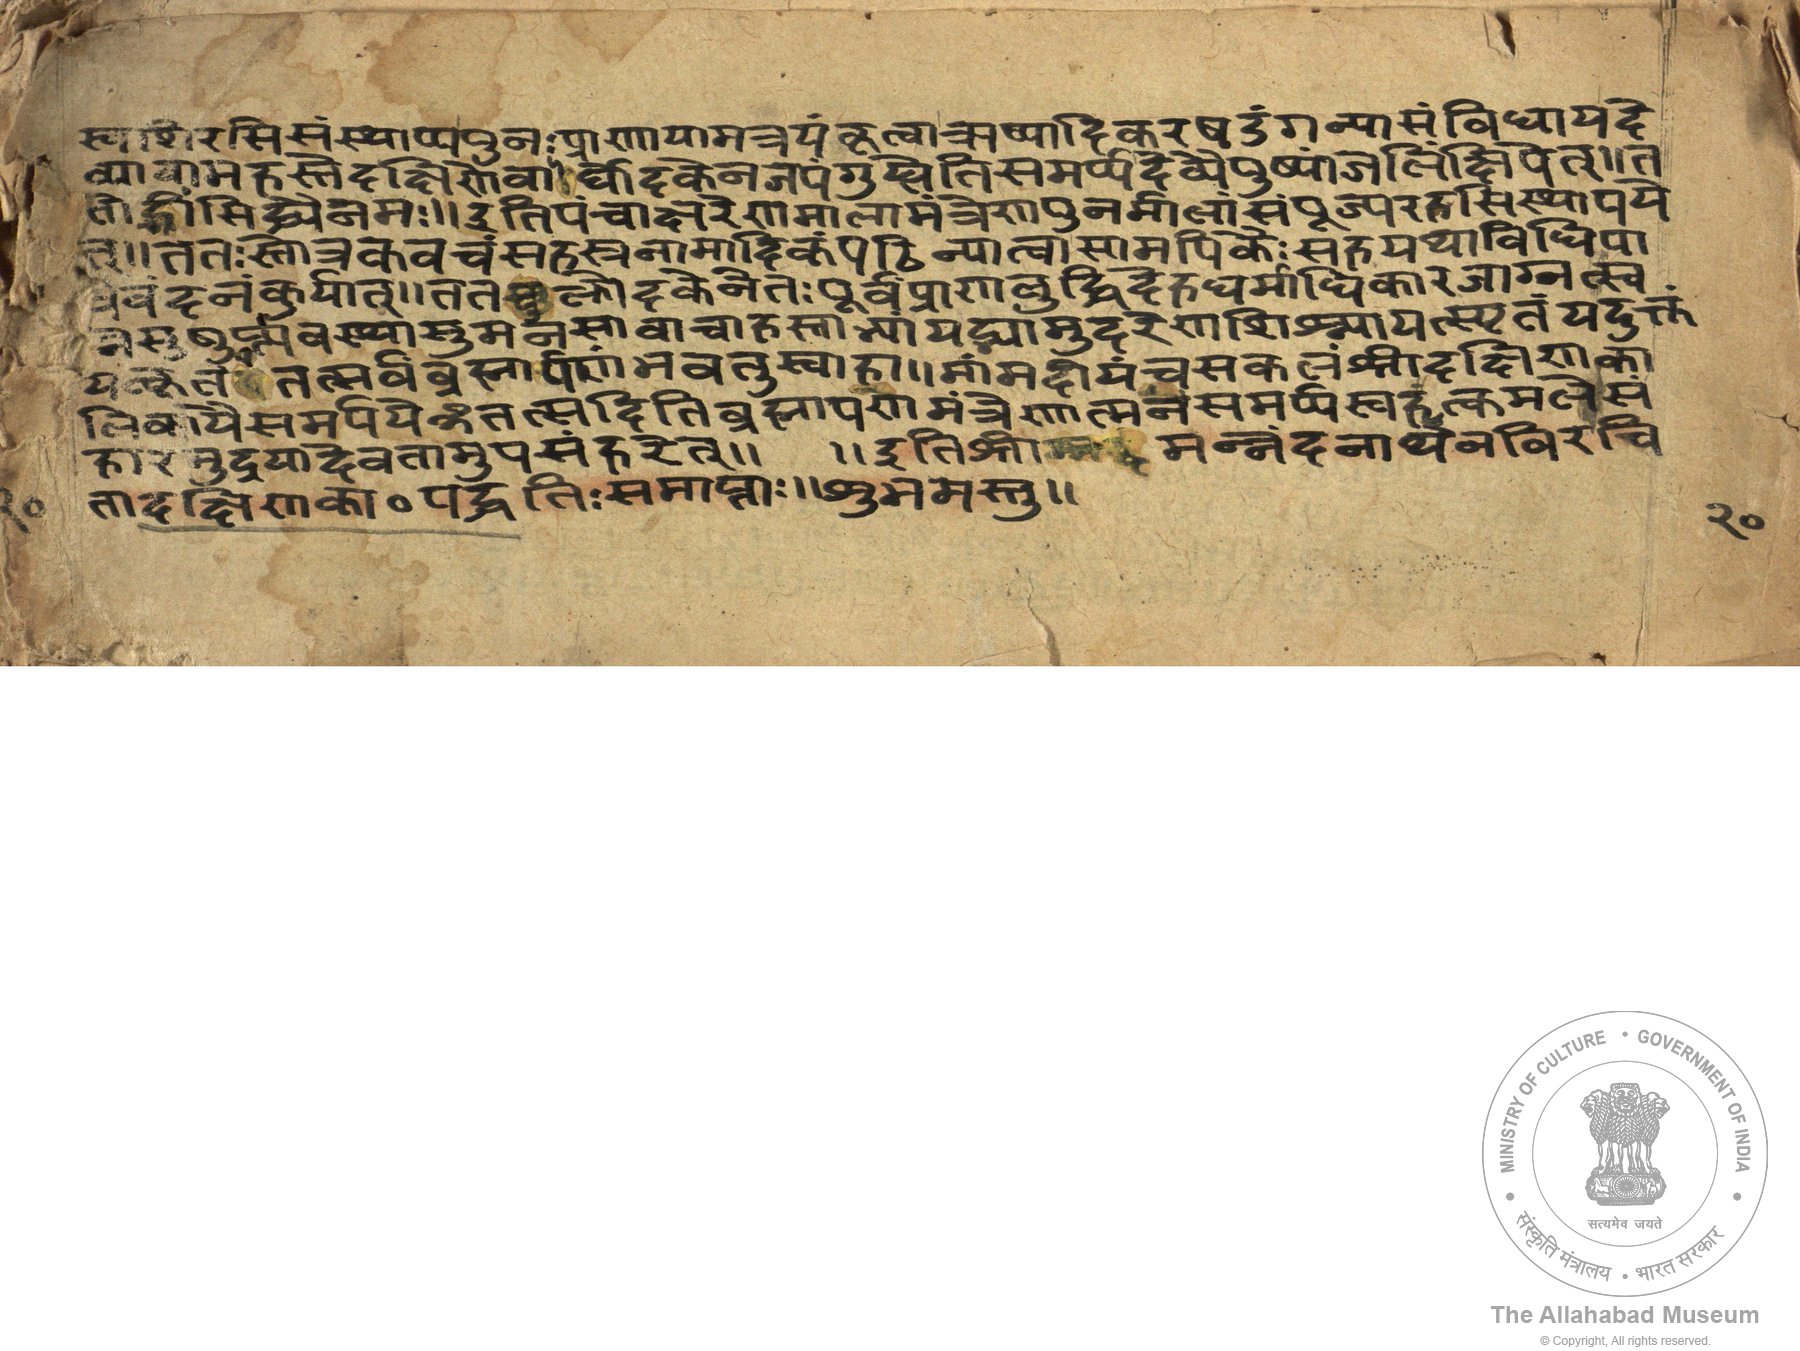 स्वशिरसिसंस्थाप्यपुनःप्राणायामत्रयंकृत्वाऋष्यादिकरषडंगन्यासंविधायदे
व्यावामहस्तेदक्षिणेवार्घोदकेनजपंगुह्येतिसमर्प्यदेव्यैपुष्पांजलिंक्षिपेत्॥त
तोह्रींसिद्ध्यैनमः॥इतिपंचाक्षरेणमालामंत्रेणपुनर्मालांसंपूज्यरहसिस्थापये
त्॥ततःस्तोत्रकवचंसहस्त्रनामादिकंपठिन्यात्वासामपिकैःसहयथाविधिपा
वंदनंकुर्यात्॥ततकोदकेनैतःपूर्वंप्राणबुद्धिदेहधर्माधिकारजाग्रत्स्व
नसुषुप्त्यवस्थासुमनसावाचाहस्ताभ्यांपद्भ्यामुदरेणशिश्नायत्स्मृतंयदुक्तं
यत्कृतंतत्सर्वंब्रह्मार्पणंभवतुस्वाहा॥मांमदीयंचसकलंश्रीदक्षिणाका
लिकायैसमर्पयेॐतत्सदितिब्रह्मापणमंत्रेणात्मनंसमर्प्यस्वहृत्कमलेसं
हारमुद्रयादेवतामुपसंहरेत्॥ ॥इतिश्रीमन्नंदनाथेनविरचि
तादक्षिणाका०पद्धतिःसमाप्ताः॥शुभमस्तु॥
२०
२०
MINISTRY OF CULTURE • GOVERNMENT OF INDIA
सत्यमेव जयते
संस्कृति मंत्रालय • भारत सरकार
The Allahabad Museum
© Copyright, All rights reserved.